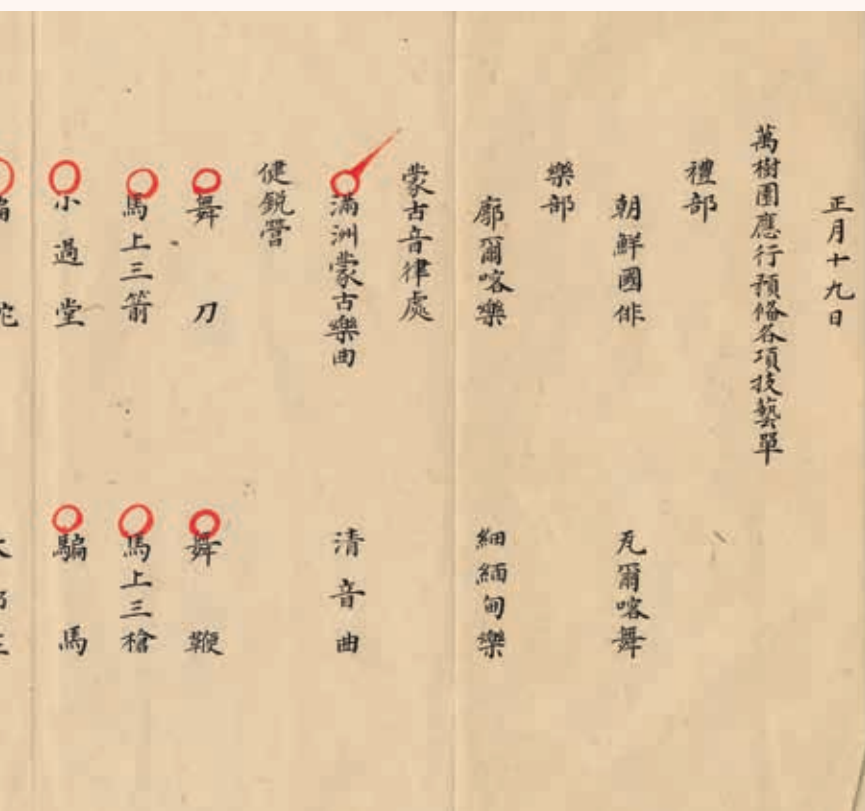 正月十九日
萬樹園應行預俻各項技藝單
禮部
朝鮮國俳
瓦爾喀舞
樂部
廓爾喀樂
細緬甸樂
蒙古音律處
滿洲蒙古樂曲
清音曲
健銳營
舞刀
舞鞭
馬上三箭
馬上三槍
小過堂
騙馬